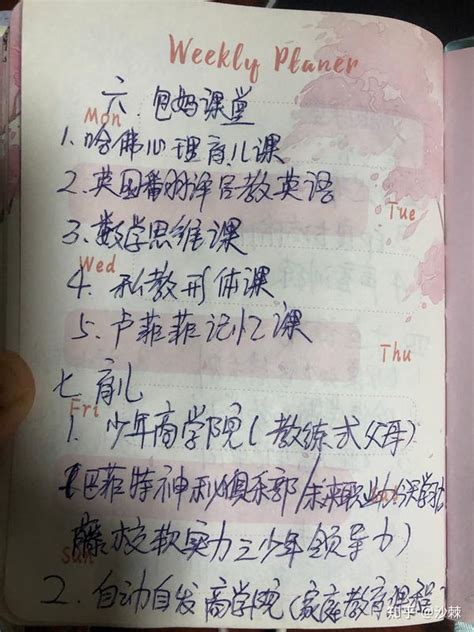 Weekly Planer
六、包妈课堂
Mon
1.哈佛心理育儿课
2.英国翻译官教英语
Tue
3.数学思维课
Wed
4.私教形体课
5.卢菲菲记忆课
Thu
七、育儿
Fri
1.少年商学院(教练式父母)
巴菲特神秘俱乐部/未来职业
藤校软实力之少年领导力)
Sun
2.自动自发商学院(家庭教育课程)
知乎 @沙棘